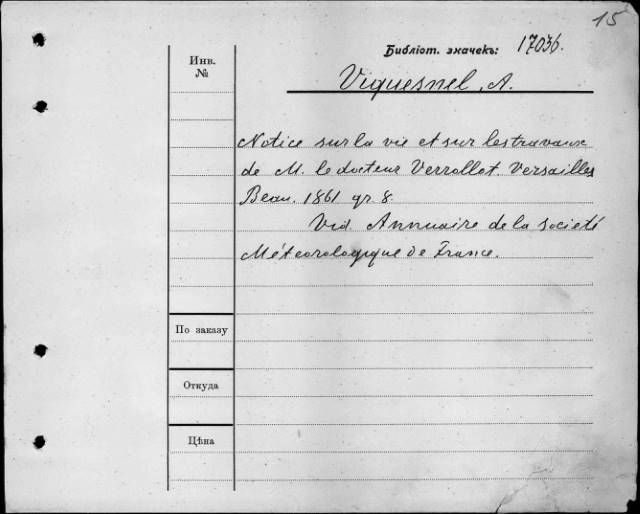 15
Библіот. значекъ: 17036.
Инв.
№
Viquesnel, A.
Notice sur la vie et sur les travaux
de M. le docteur Verrollot. Versailles
Beau. 1861 gr. 8.
Vid. Annuaire de la societé
Météorologique de France.
По заказу
Откуда
Цѣна